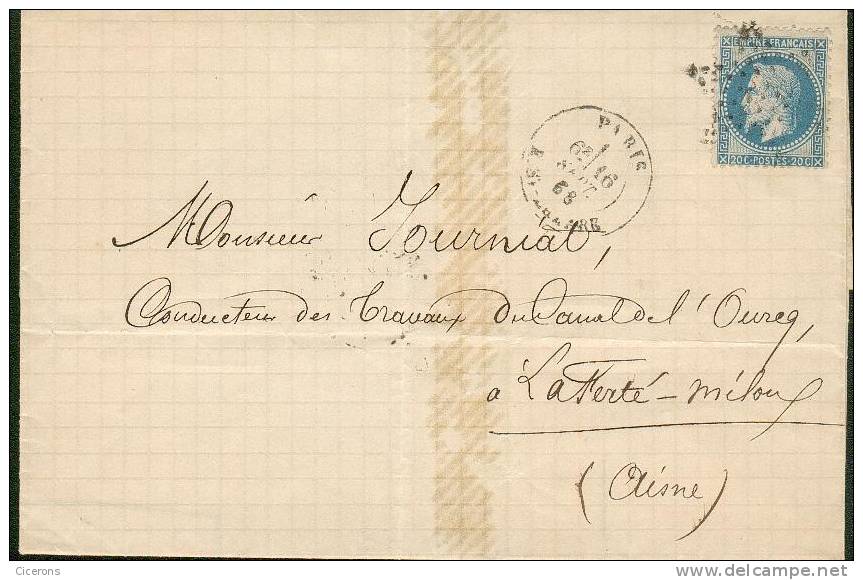 EMPIRE FRANÇAIS
20C-POSTES-20C
PARIS
16
68
Monsieur Journiat,
Conducteur des Travaux du Canal de l'Ourcq,
à La Ferté-Milon
(Aisne)
Cicerons
delcampe.net